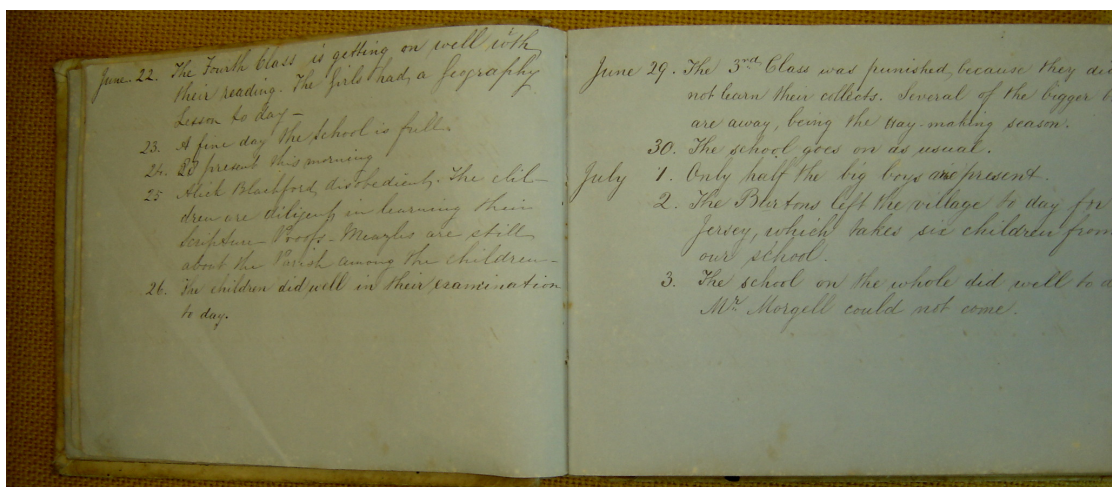 June. 22. The Fourth Class is getting on well with
their reading. The girls had a Geography
Lesson to day –
23. A fine day the School is full.
24. present this morning
25 Alice Blackford disobedient. The chil-
dren are diligent in learning their
Scripture – Proofs – Meazles are still
about the Parish among the children –
26. The children did well in their examination
to day.
June 29. The 3rd Class was punished, because they did
not learn their collects. Several of the bigger
are away, being the Hay-making season.
30. The school goes on as usual.
July 1. Only half the big boys are present.
2. The Burtons left the village to day for
Jersey, which takes six children from
our school.
3. The school on the whole did well to d
Mr. Morgell could not come.